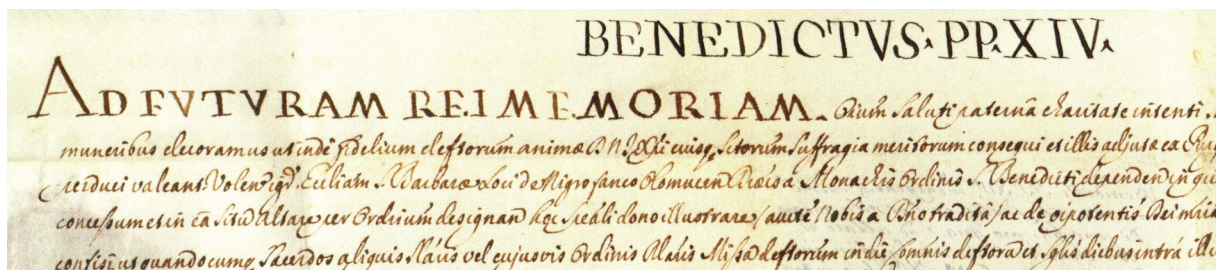 BENEDICTVS·PP·XIV·
AD FVTVRAM REI MEMORIAM. Oium Saluti paterna charitate intenti
muneribus decoramus ut inde fidelium deftorum animæ D. N. Jesu Xti eiusq; Sctorum suffragia meritorum consequi et illis adjutæ ex
perduci valeant. Volen igr. Ecciliam S. Barbaræ Loci de Nigro Olomucen Diæcis a Monachis Ordinis S. Benedicti dependen in qua
concessum et in ea situm Altare per Ordrium designan hoc speali dono illustrare, auctte Nobis a Dno tradita, ac de oipotentis Dei
confisi ut quandocumq; Sacerdos aliquis vel cujusvis Ordinis Missam deftorum in die Comnis deftorum et sglis diebus intra